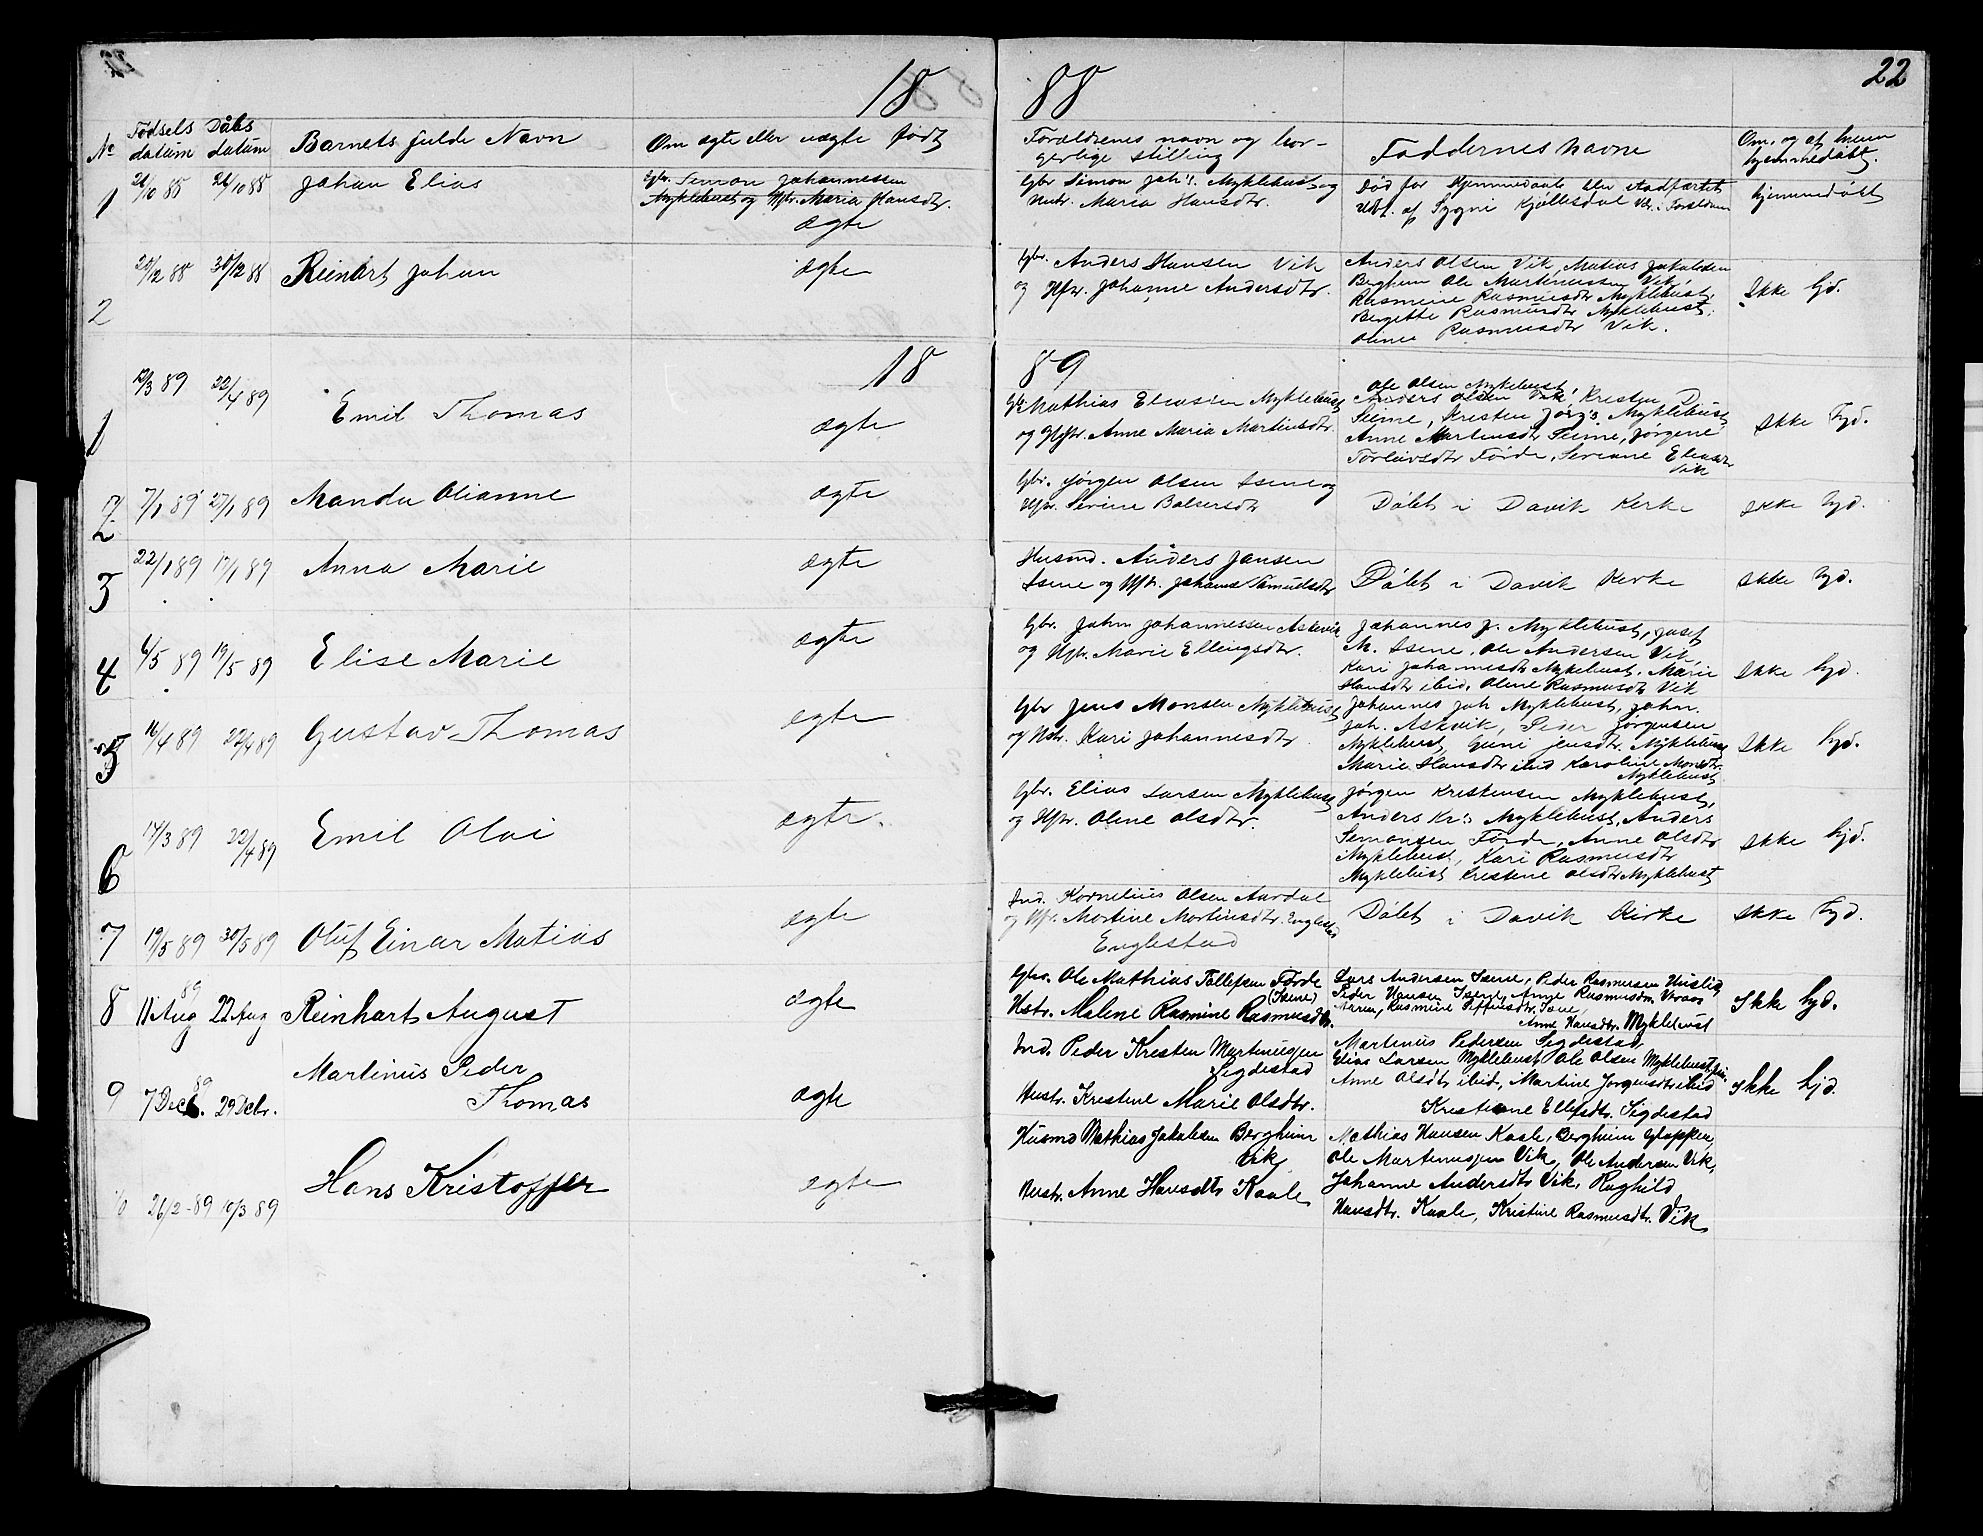 22
18 88
No Fødsels datum Dåbs datum Barnets fulde Navn Om ægte eller uægte født Forældrenes navn og borgerlige stilling Faddernes navne Om, og af hvem hjemmedøbt.
1 26/10 88 26/10 88 Johan Elias
Gbr. Simon Johannessen
Myklebust og Hstr. Maria Hansdtr.
ægte
Gbr Simon Joh's. Myklebust og
Hustr. Maria Hansdtr.
Død før Hjemmedaab blev stadfæstet
af Sygni Kjøllesdal
hjemmedøbt
2 20/12 88 30/12 88 Reinart Johan
ægte
Gbr. Anders Hansen Vik
og Hstr. Johanne Andersdtr.
Anders Olsen Vik, Matias Jakobsen
Berghem Ole Martinussen Vik,
Rasmine Rasmusdtr Myklebust,
Bergitte Rasmusdtr Myklebust,
Oline Rasmusdtr Vik.
Ikke hjd.
18 89
1 12/3 89 22/4 89 Emil Thomas
ægte
Gbr. Mathias Eliassen Myklebust
og Hstr. Anne Maria Martinsdtr.
Ole Olsen Myklebust,
Anders Olsen Vik, Kristen D.
Seime, Kristen Jørg's Myklebust
Anne Martinusdtr Seime, Jørgine
Torleivsdtr Førde, Seriane Eliasdtr
Vik
Ikke hjd.
2 7/1 89 27/1 89 Manda Olianne
ægte
Gbr. Jørgen Olsen Isene og
Hstr. Sevine Balsersdtr
Døbt i Davik Kerke
Ikke hjd.
3 22/1 89 17/1 89 Anna Marie
ægte
Husmd. Anders Jansen
Isene og Hstr. Johanne Samuelsdtr
Døbt i Davik Kerke
Ikke hjd.
4 6/5 89 19/5 89 Elise Marie
ægte
Gbr. John Johannessen Askevik
og Hstr. Marie Ellingsdtr.
Johannes J. Myklebust, Josef
M. Isene, Ole Andersen Vik,
Kari Johannesdtr Myklebust. Marie
Hansdtr ibid. Oline Rasmusdtr Vik
Ikke hjd.
5 16/4 89 22/4 89 Gustav Thomas
ægte
Gbr Jens Monsen Myklebust
og Hstr. Kari Johannesdtr.
Johannes Joh Myklebust, John.
Joh. Askvik, Peder Jørgensen
Myklebust, Guni Jensdtr. Myklebust
Marie Hansdtr ibid Karoline Monsdtr.
Myklebust
Ikke hjd.
6 14/3 89 22/4 89 Emil Olai
ægte.
Gbr. Elias Larsen Myklebust
og Hstr. Oline Olsdtr.
Jørgen Kristensen Myklebust,
Anders Kr's Myklebust, Anders
Simonsen Førde, Anne Olsdtr
Myklebust, Kari Rasmusdtr
Myklebust Kristine Olsdtr Myklebust
Ikke hjd.
7 19/5 89 30/5 89 Oluf Einar Matias
ægte
Ind. Kornelius Olsen Aardal
og Hstr. Martine Martinsdtr. Englestad
Englestad
Døbt i Davik Kirke
Ikke hjd.
8 11 Aug 89 22 Aug Reinhart August
ægte
Gbr. Ole Mathias Tollefsen Førde
(Isene)
Hstr. Malene Rasmine Rasmusdtr.
Lars Andersen Isene, Peder Rasmussen
Peder Hansen Isene, Anne Rasmusdtr
Rasmine Isene,
Anne Hansdtr. Myklebust
Ikke hjd.
9 7 Decb. 89 29 Decbr. Martinus Peder
Thomas
ægte
Ind. Peder Kristen Martinussen
Sigdestad
Hustr. Kristine Marie Olsdtr.
Martinus Pedersen Sigdestad
Elias Larsen Myklebust Ole Olsen Myklebust
Anne Olsdtr ibid, Martine Jørgensdtr ibid
Kristiane Ellefsdtr. Sigdestad
Ikke hjd.
10 26/2-89 10/3 89 Hans Kristoffer
ægte
Husmd Mathias Jakobsen Bergheim
Vik
Hustr. Anne Hansdtr Kaale
Mathias Hansen Kaale, Bergheim Gloppen,
Ole Martinussen Vik, Ole Andersen Vik,
Johanne Andersdtr Vik, Raghild
Hansdtr. Kaale, Kristine Rasmusdtr. Vik